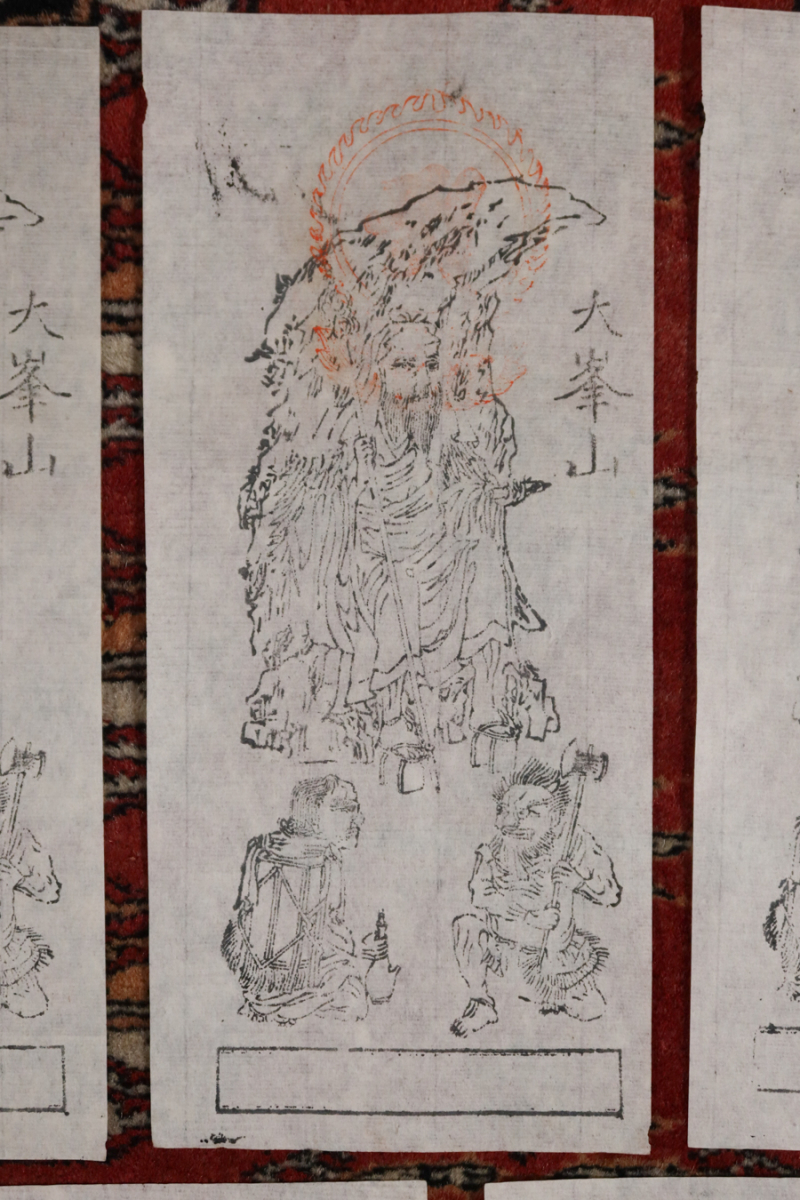 大峯山
大峯山